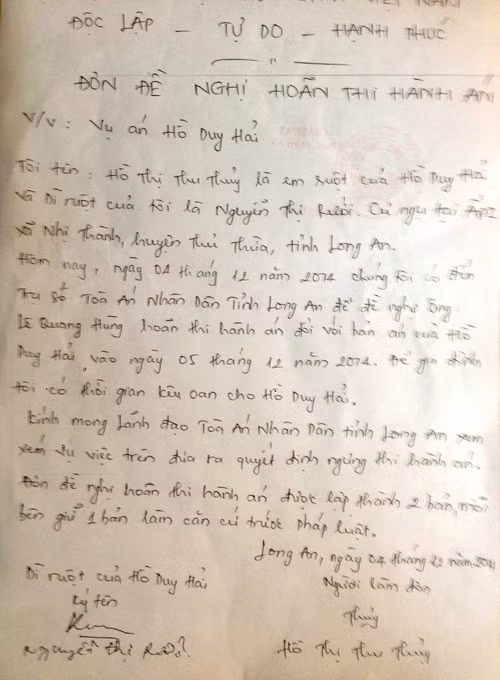 ĐỘC LẬP – TỰ DO – HẠNH PHÚC
ĐƠN ĐỀ NGHỊ HOÃN THI HÀNH ÁN
V/v: Vụ án Hồ Duy Hải
Tôi tên: Hồ Thị Thu Thủy là em ruột của Hồ Duy Hải
Và Dì ruột của tôi là Nguyễn Thị Rưởi. Cư ngụ tại ẤP I
xã Nhị Thành, huyện Thủ Thừa, tỉnh Long An.
Hôm nay, ngày 04 tháng 12 năm 2014 chúng tôi có đến
Trụ sở Toà Án Nhân Dân Tỉnh Long An để đề nghị Ông
Lê Quang Hùng hoãn thi hành án đối với bản án của Hồ
Duy Hải, vào ngày 05 tháng 12 năm 2014. Để gia đình
tôi có thời gian kêu oan cho Hồ Duy Hải.
Kính mong Lãnh đạo Toà Án Nhân Dân tỉnh Long An xem
xem vụ việc trên đưa ra quyết định ngừng thi hành án.
Đơn đề nghị hoãn thi hành án được lập thành 2 bản, mỗi
bên giữ 1 bản làm căn cứ trước pháp luật.
Long An, ngày 04 tháng 12 năm 2014
Dì ruột của Hồ Duy Hải
Người làm đơn
Ký tên
Thủy
Nguyễn Thị Rưởi
Hồ Thị Thu Thủy